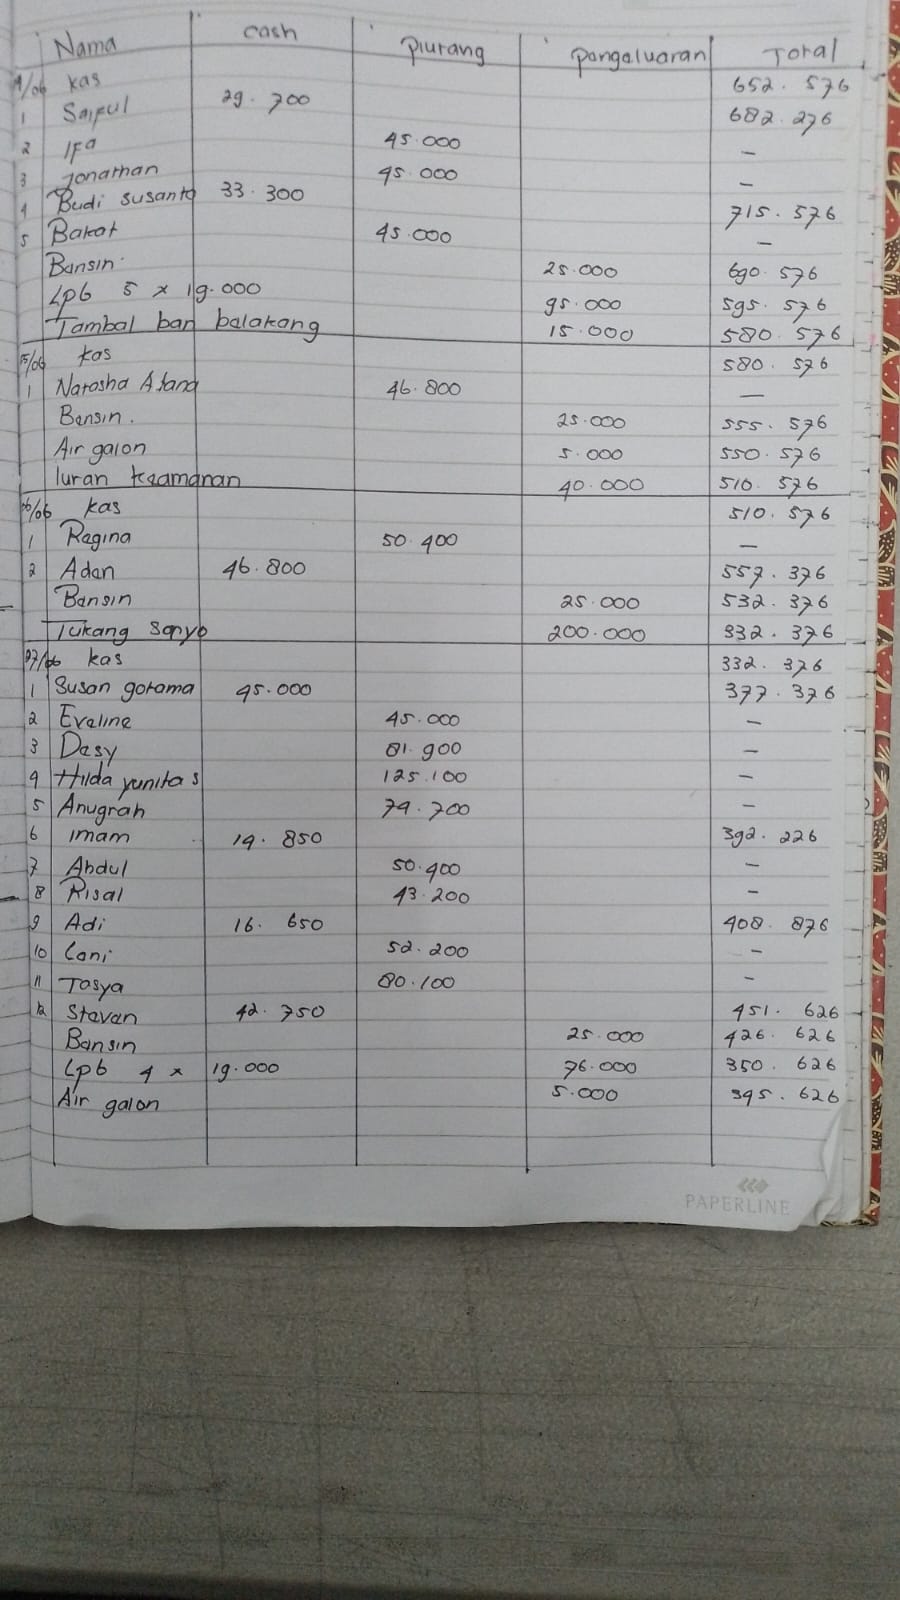 Nama cash piurang pengeluaran Total
4/06 kas 652. 576
1 Saiful 29. 700 682. 276
2 IFa 45.000 —
3 Jonathan 45.000 —
4 Budi susanto 33. 300 715. 576
5 Bakat 45.000 —
Bensin. 25.000 690. 576
Lpb 5 x 19.000 95.000 595. 576
Tambal ban belakang 15.000 580. 576
05/06 kas 580. 576
1 Natasha A fang 46.800 —
Bensin. 25.000 555. 576
Air galon 5.000 550. 576
Iuran keamanan 40.000 510. 576
06/06 kas 510. 576
1 Regina 50.400 —
2 Aden 46.800 557. 376
Bensin 25.000 532. 376
Tukang Sanyo 200.000 332. 376
07/06 kas 332. 376
1 Susan gotama 45.000 377. 376
2 Eveline 45.000 —
3 Desy 81.900 —
4 Hilda yunita s 125.100 —
5 Anugrah 74.700 —
6 imam 14. 850 392. 226
7 Abdul 50.400 —
8 Risal 43.200 —
9 Adi 16. 650 408. 876
10 Cani 52.200 —
11 Tasya 80.100 —
12 Steven 42. 750 451. 626
Bensin 25.000 426. 626
Lpb 4 x 19.000 76.000 350. 626
Air galon 5.000 345. 626
PAPERLINE